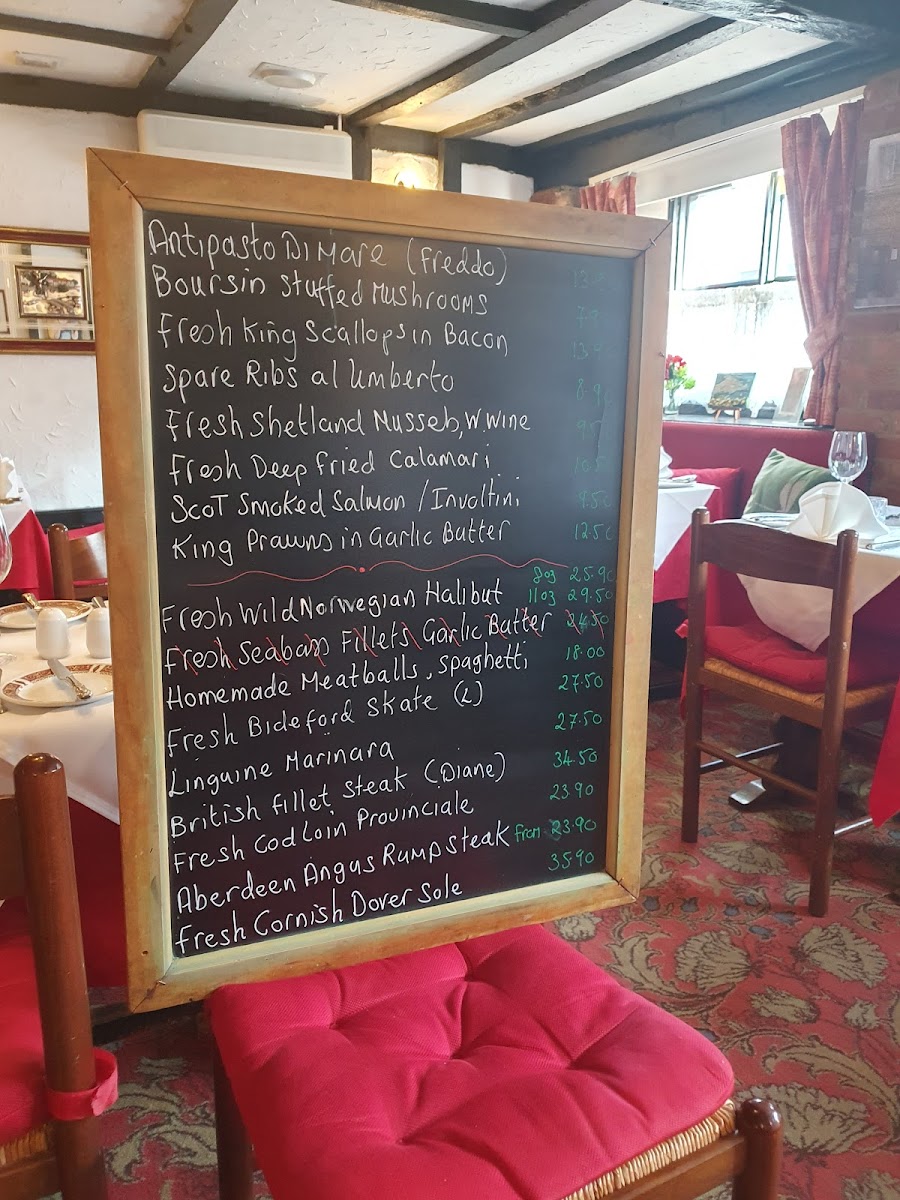 Antipasto Di Mare (Freddo)
Boursin Stuffed Mushrooms
Fresh King Scallops in Bacon
Spare Ribs al Umberto 8.90
Fresh Shetland Mussels, W.Wine
Fresh Deep fried Calamari
Scot Smoked Salmon / Involtini 9.50
King Prawns in Garlic Butter 12.50
8oz 25.90
Fresh Wild Norwegian Halibut 11oz 29.50
Fresh Seabass Fillets Garlic Butter 24.50
Homemade Meatballs, Spaghetti 18.00
Fresh Bideford Skate (L) 27.50
Linguine Marinara 27.50
British fillet Steak (Diane) 34.50
Fresh Cod Loin Provinciale 23.90
Aberdeen Angus Rump steak from 23.90
Fresh Cornish Dover Sole 35.90